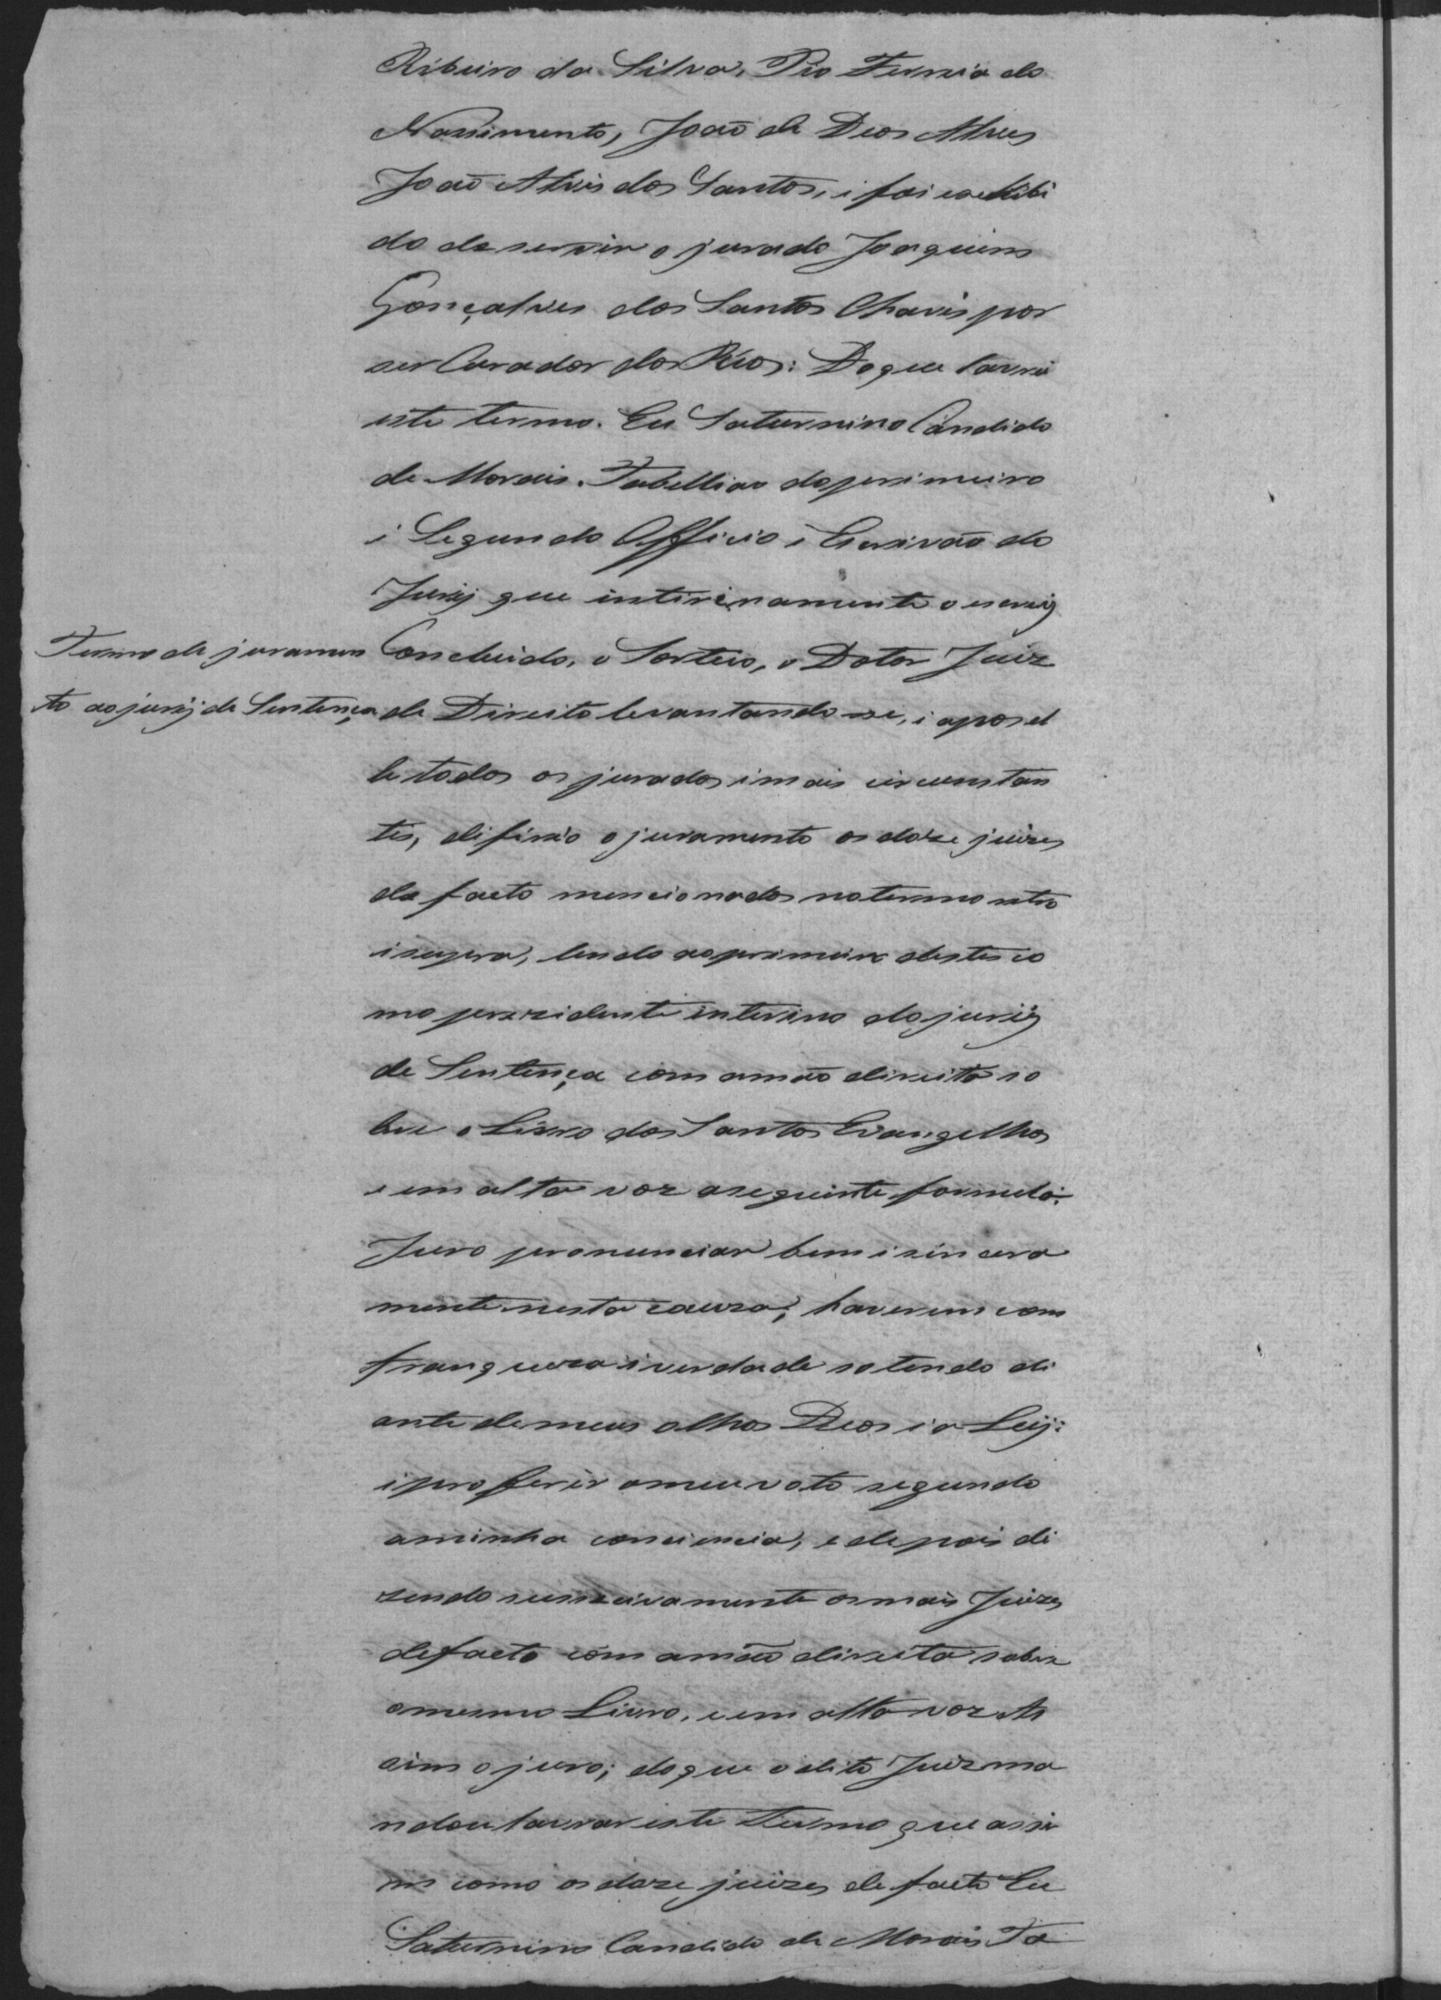 Ribeiro da Silva, Pio Ferreira do
Nassimento, João de Deos Alves
João Alvis dos Santos, i foi exchibi
do de servir o jurado Joaquim
Gonçalves dos Santos Chavis por
ser Curador dos Réos: Do que lavrei
este termo. Eu Saturnino Candido
de Morais. Tabellião do primeiro
i Segundo Officio i Escrivão do
Jurij que intirinamente o escrevij
Termo de juramen
to ao jurij de Sentença
Concluido, o Sorteio, o Dotor Juiz
de Direito levantando-se, i apos el
le todos os jurados i mais circunstan
tes, difirio o juramento os doze juizes
de facto mencionados no termo retro
i supra, lendo ao primeiro destes co
mo prezidente interino do jurij
de Sentença com a mão direita so
bre o Livro dos Santos Evangelhos
e em alta voz a seguinte formula:
Juro pronunciar bem i sincera
mente nesta cauza; haverem com
franqueza i verdade so tendo di
ante de meus olhos Deos i a Leij:
i proferir o meu voto segundo
a minha conciencia, e depois di
zendo sucessivamente os mais Juizes
de facto com a mão direita sobre
o mesmo Livro, e em alta voz As
sim o juro; do que o dito Juiz ma
ndou lavrar este Termo que assi
na como os doze juizes de facto Eu
Saturnino Candido de Morais Ta